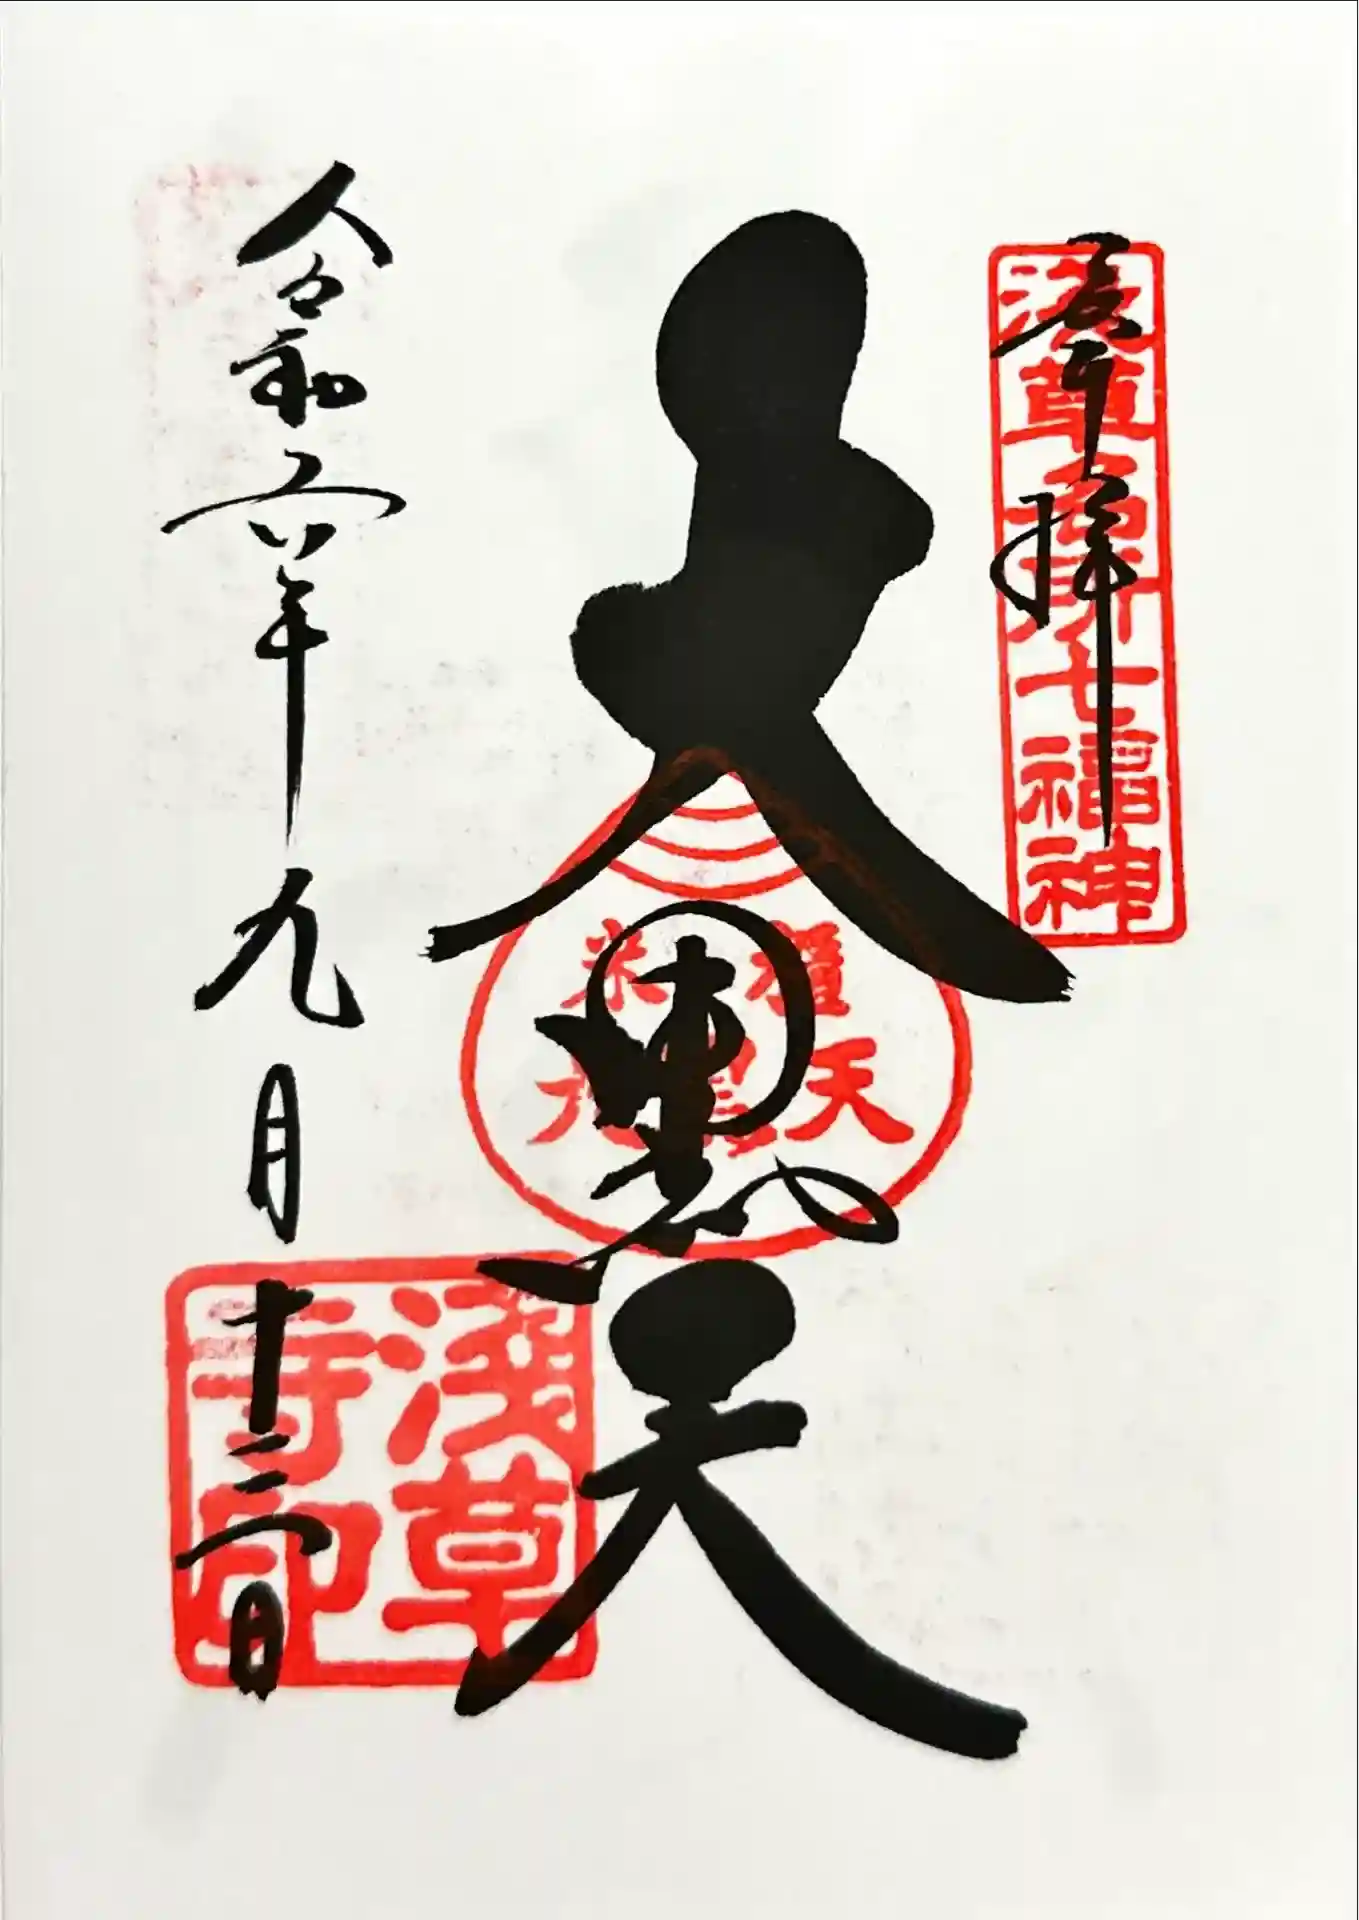 奉拝
浅草名所七福神
大黒天
権天
米尾
令和六年九月十二日
浅草
寺印